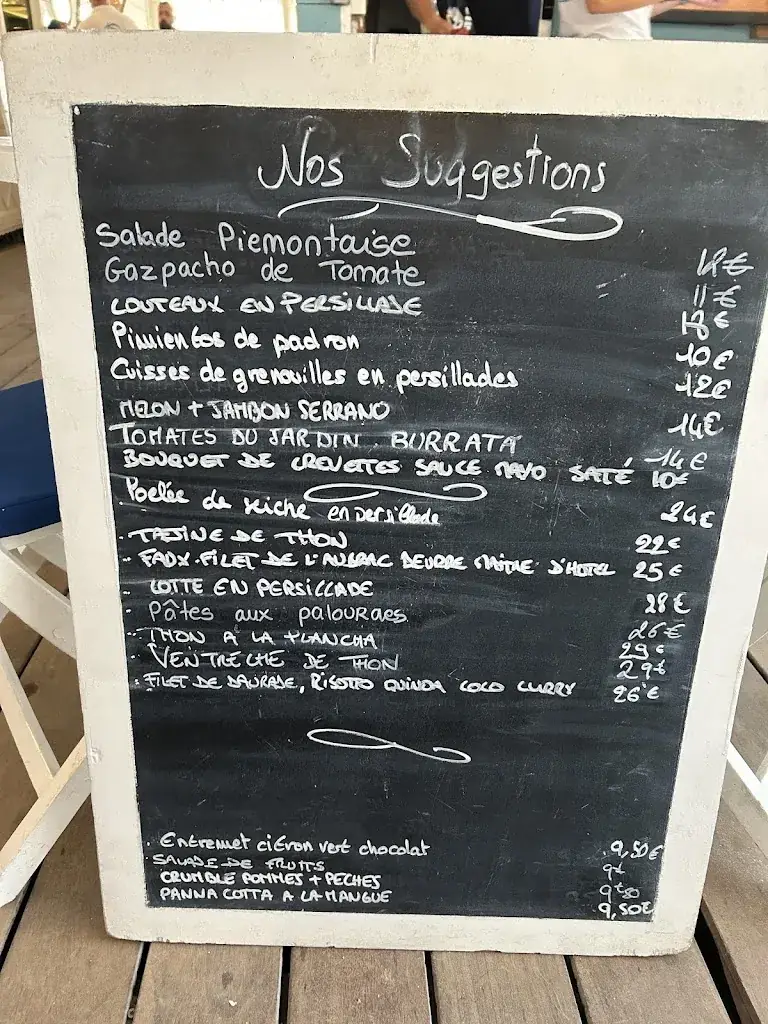 Nos Suggestions
Salade Piemontaise 12€
Gazpacho de Tomate 11€
COUTEAUX EN PERSILLADE €
Pimientos de padron 10€
Cuisses de grenouilles en persillades 12€
MELON + JAMBON SERRANO 14€
TOMATES DU JARDIN. BURRATA 14€
BOUQUET DE CREVETTES SAUCE MAYO SATÉ 10€
Poelée de seiche en persillade 24€
. TAJINE DE THON 22€
. FAUX.FILET DE L'AUBRAC BEURRE MAITRE D'HOTEL 25€
. LOTTE EN PERSILLADE 28€
. Pâtes aux palourdes 26€
. THON A LA PLANCHA 29€
. VENTRECHE DE THON 29€
. FILET DE DAURADE, RISOTTO QUINOA COCO CURRY 26€
. Entremet citron vert chocolat 9,50€
. SALADE DE FRUITS 9€
CRUMBLE POMMES + PECHES 9€50
PANNA COTTA A LA MANGUE 9,50€